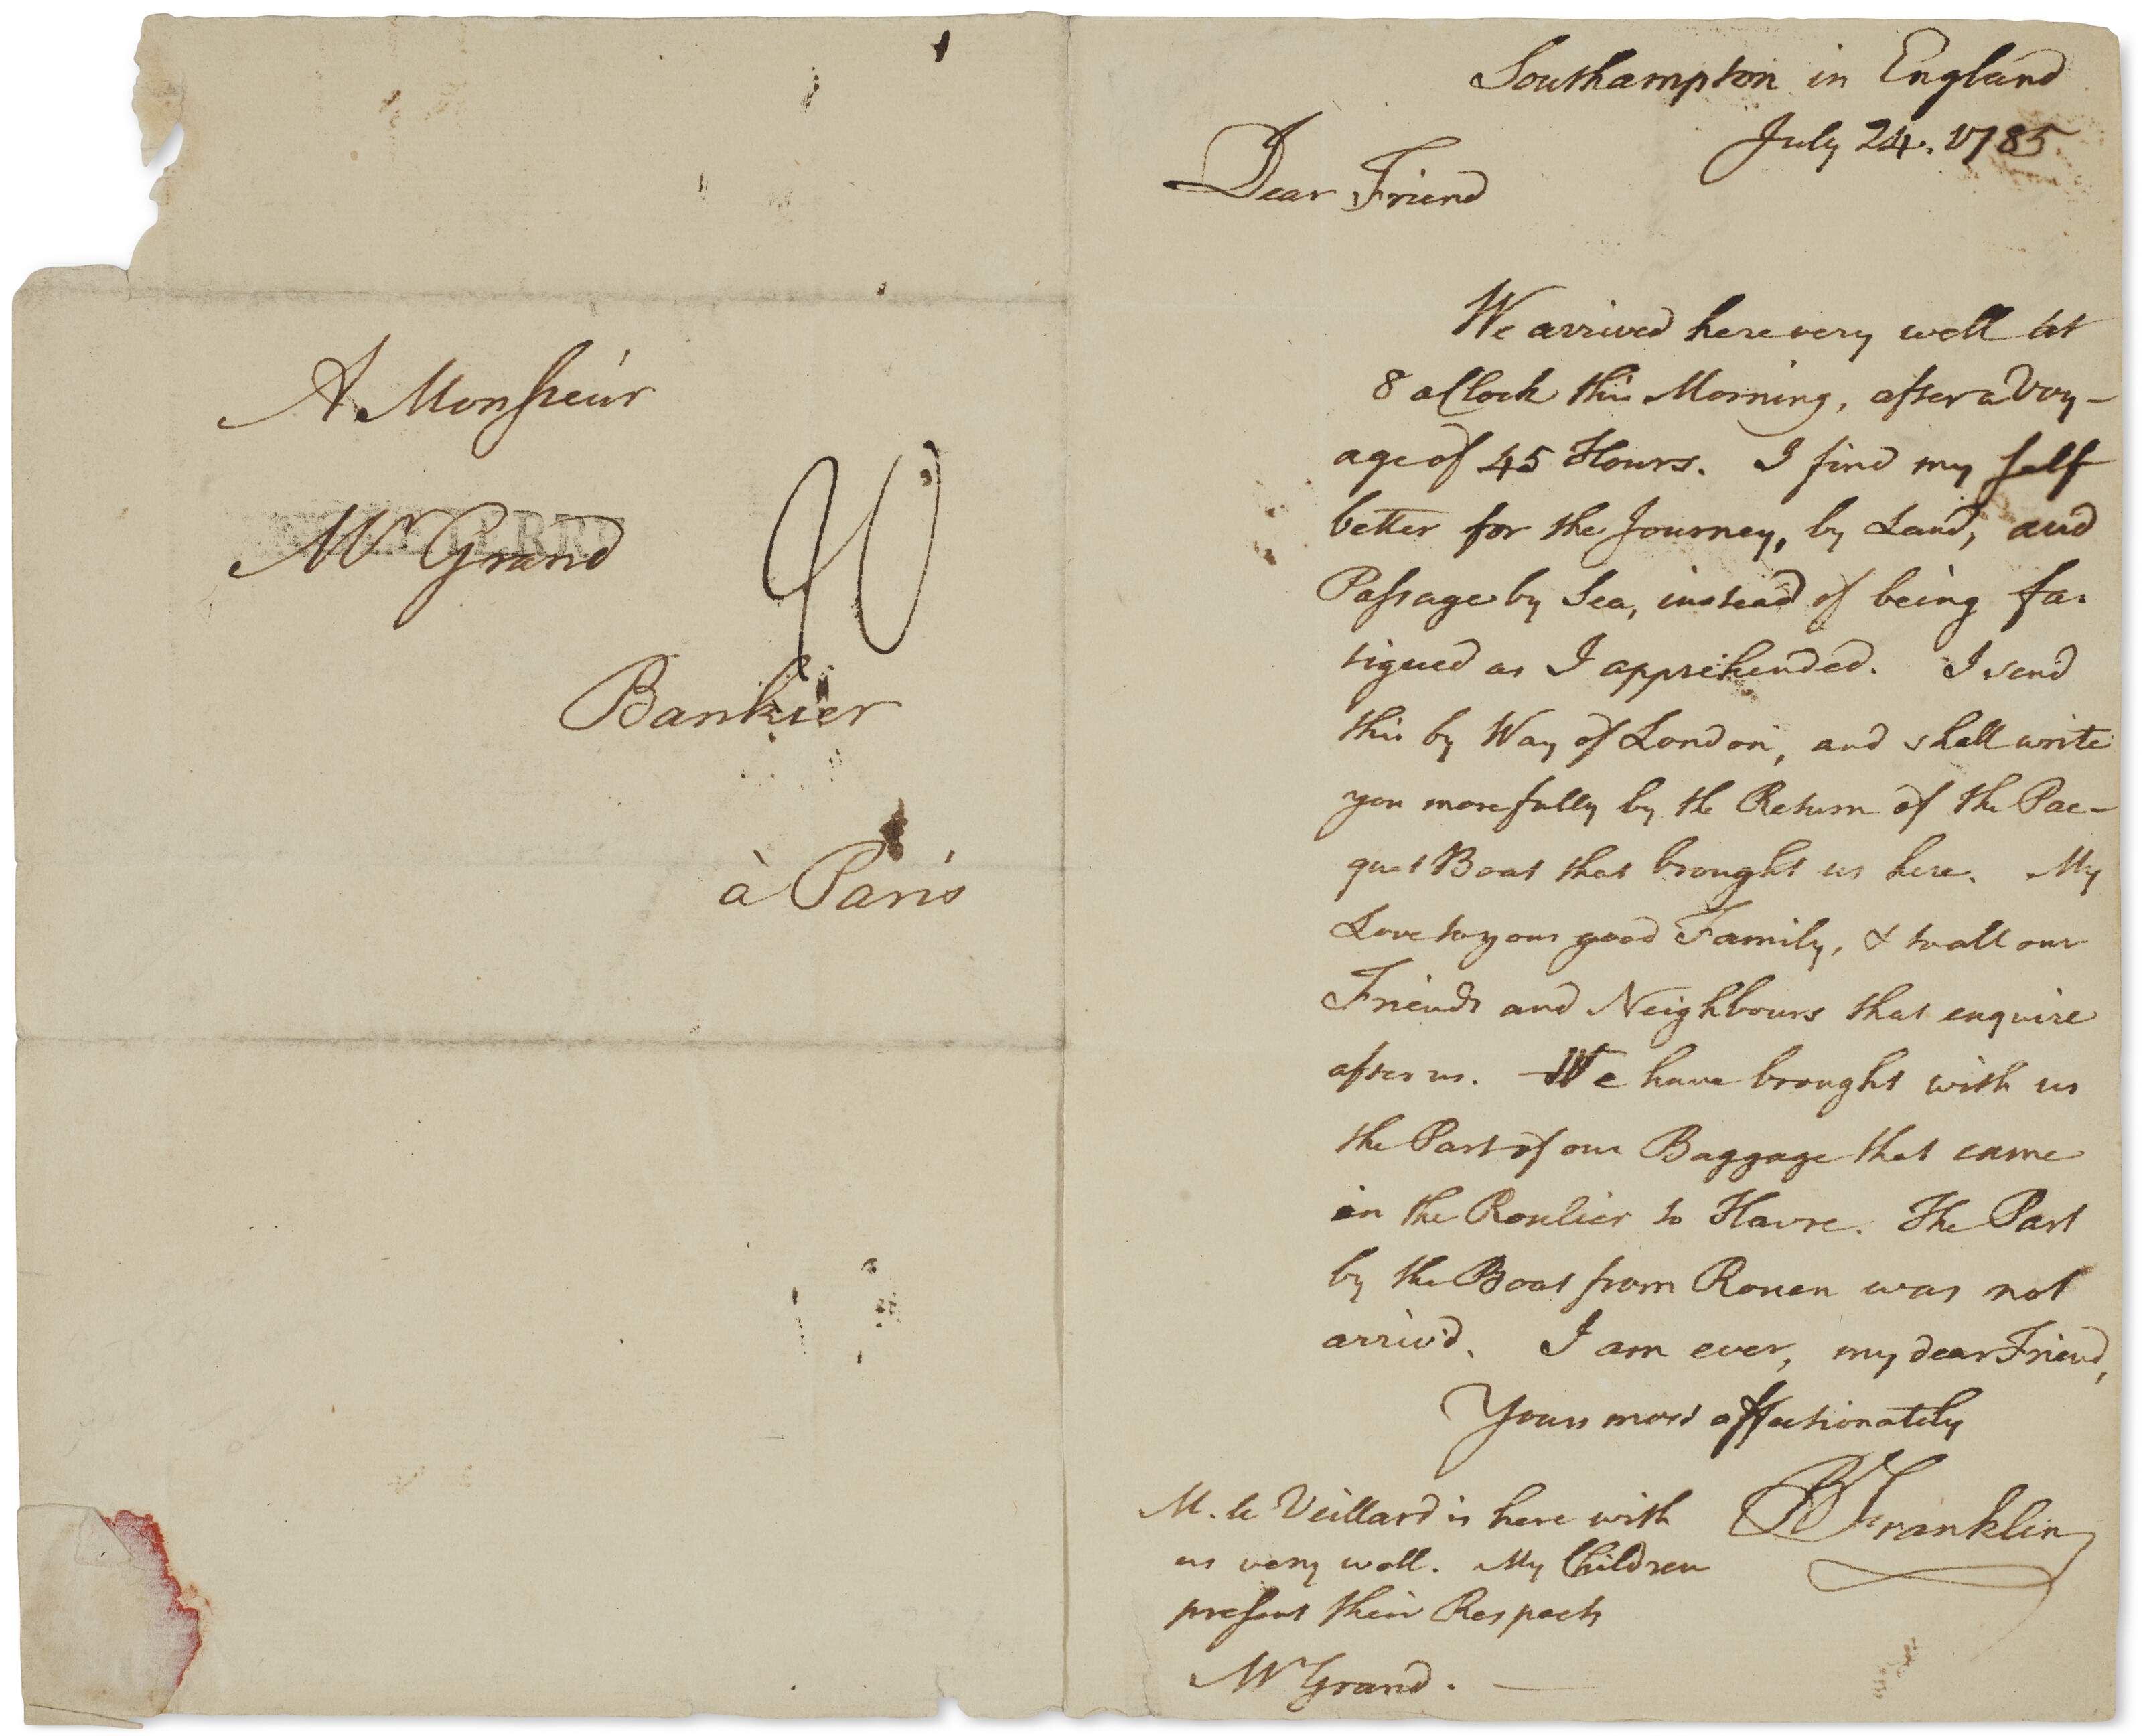 A Monsieur
Mr Grand
ANGLETERRE
Bankier
à Paris
Southampton in England
July 24. 1785.
Dear Friend
We arrived here very well at
8 aClock this Morning, after a Voy-
age of 45 Hours. I find my self
better for the Journey, by Land, and
Passage by Sea, instead of being fa-
tigued as I apprehended. I send
this by Way of London, and shall write
you more fully by the Return of the Pac-
quet Boat that brought us here. My
Love to your good Family, & to all our
Friends and Neighbours that enquire
after us. We have brought with us
the Part of our Baggage that came
in the Roulier to Havre. The Part
by the Boat from Rouen was not
arriv'd. I am ever, my dear Friend,
Yours most affectionately
B Franklin
M. le Veillard is here with
us very well. My Children
present their Respects
Mr Grand.